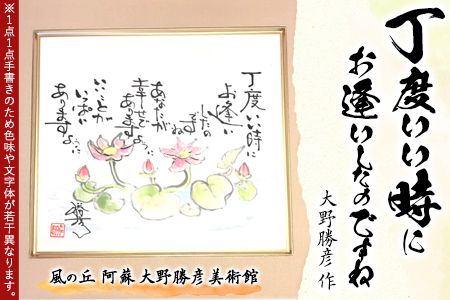 丁度いい時に
お逢いしたのですね
大野勝彦 作
丁度いい時に
お逢い
したの
ですね
あなたが
幸せで
ありますように
いいことが
いっぱい
ありますように
風の丘 阿蘇 大野勝彦美術館
※1点1点手書きのため色味や文字体が若干異なります。